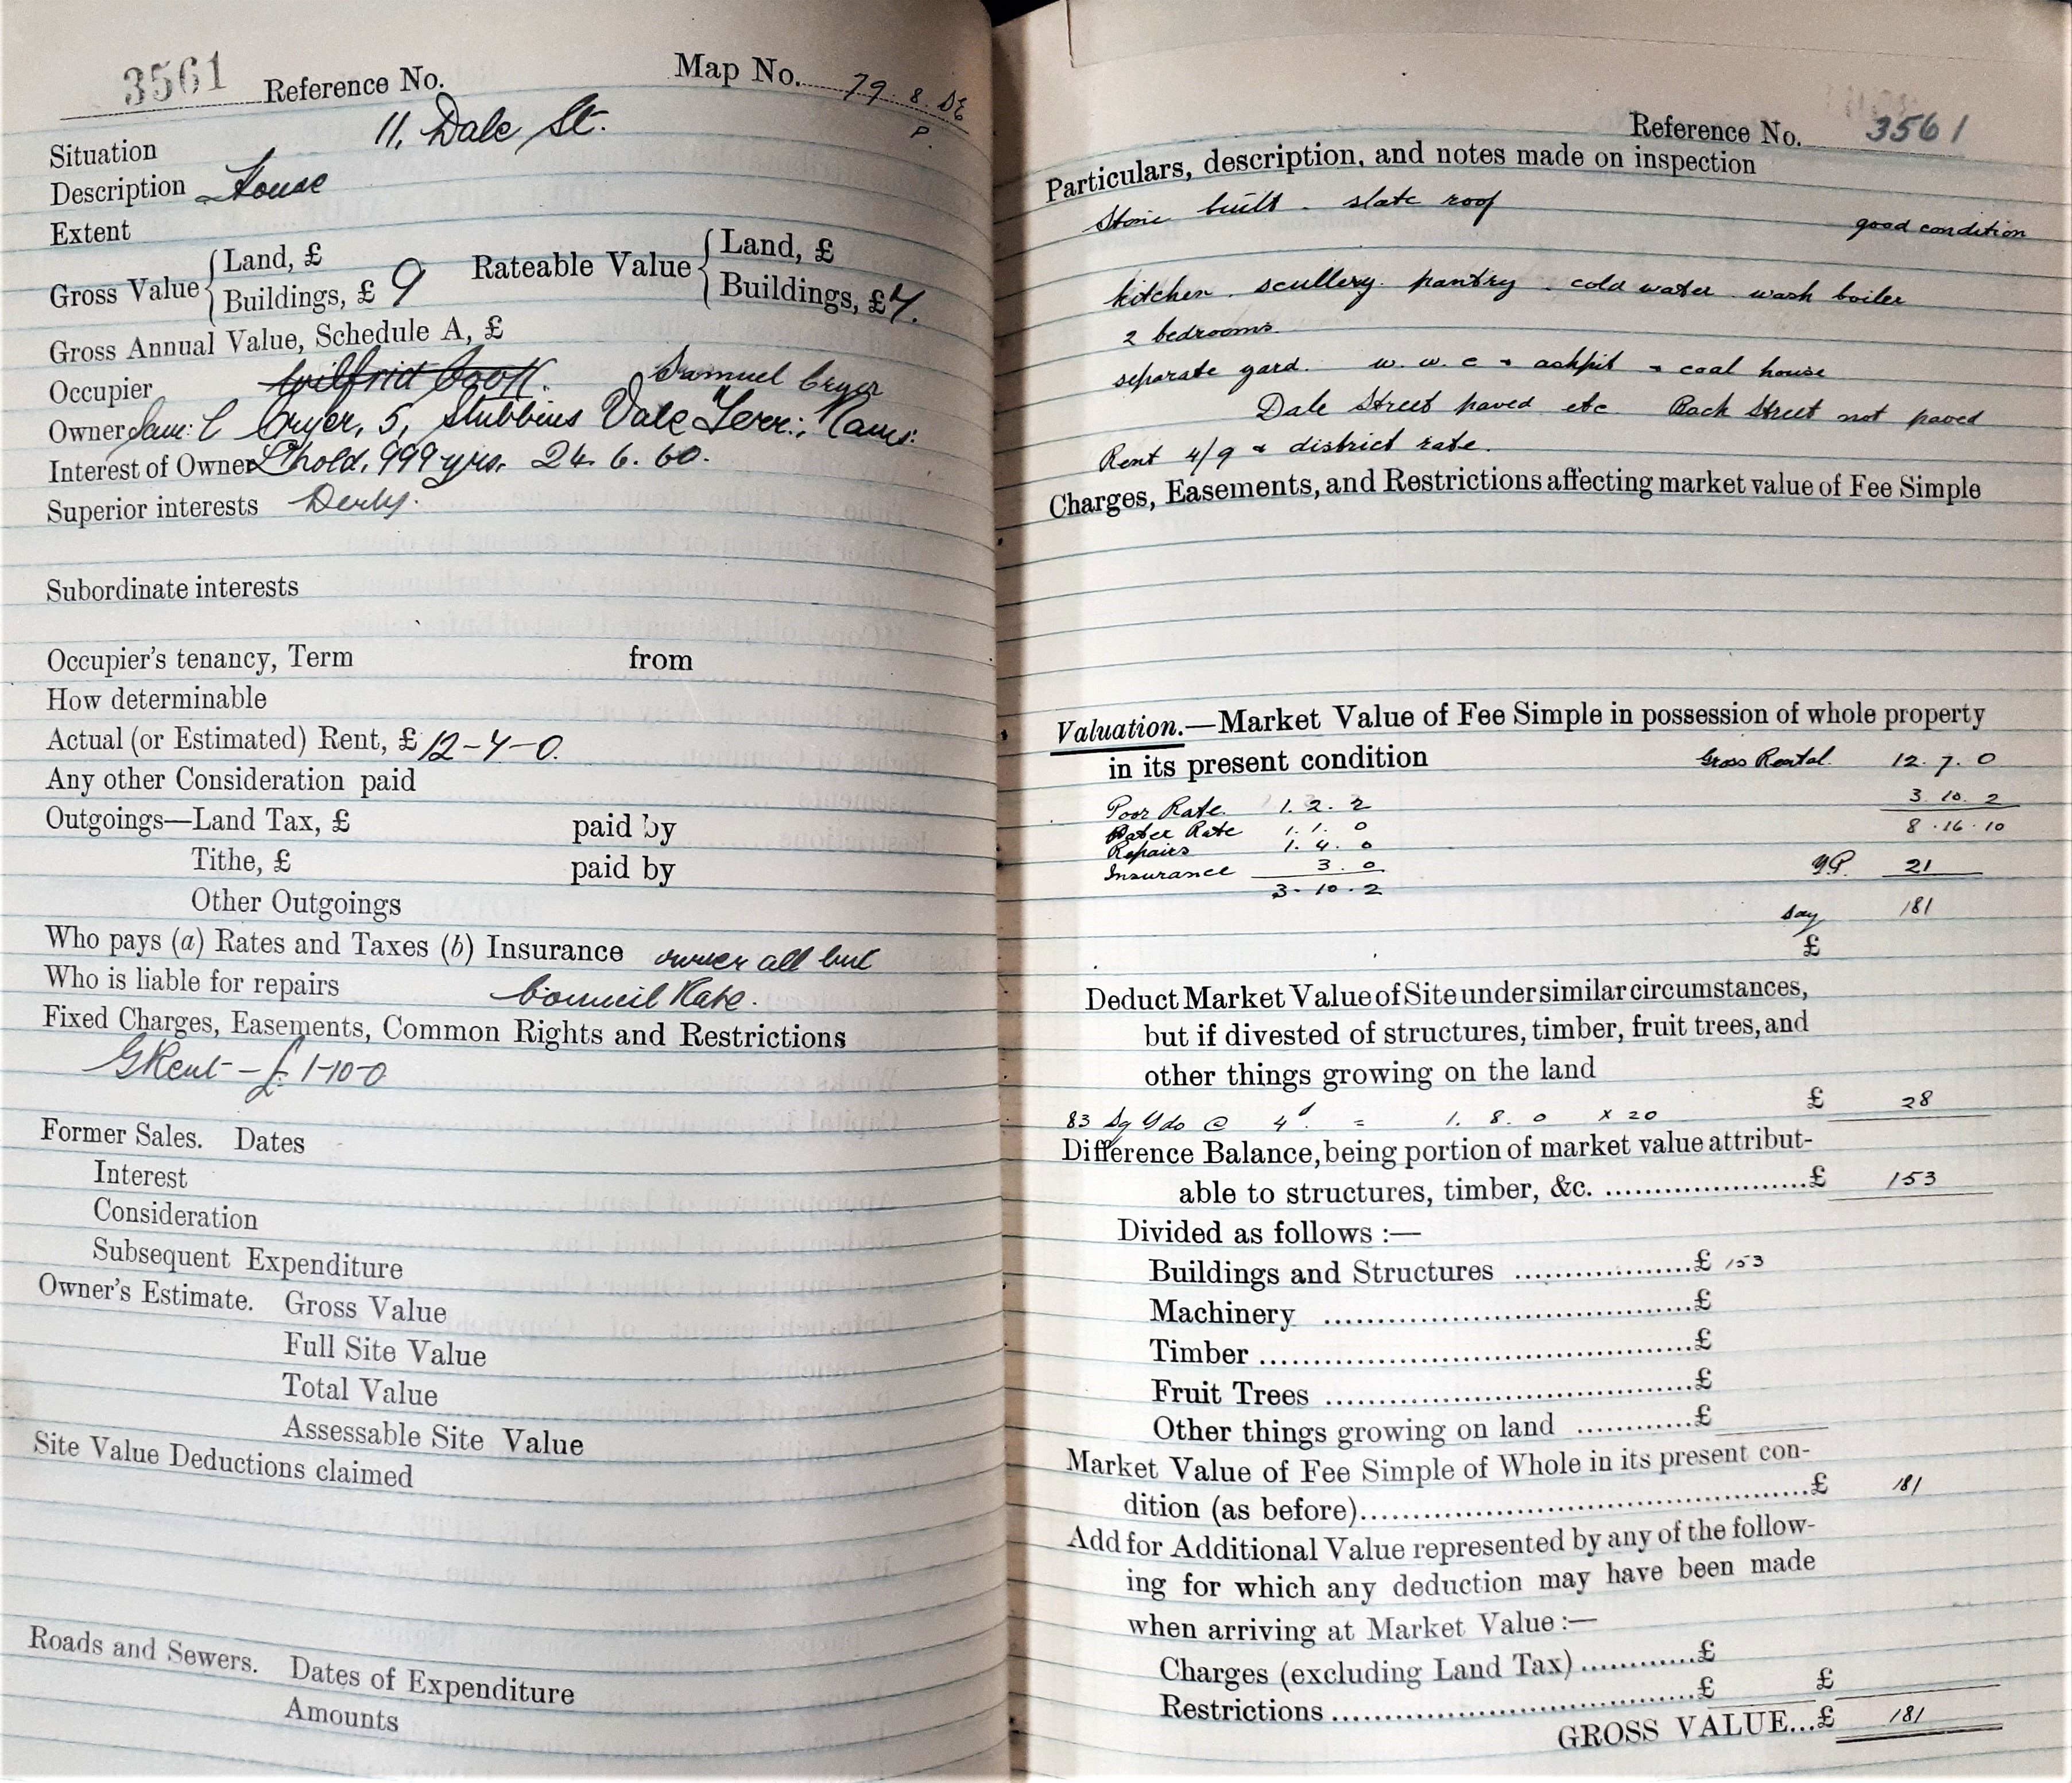 3561 Reference No. Map No. 79. 8. DE
P.
Situation 11, Dale St.
Description House
Extent
Gross Value { Land, £ Rateable Value { Land, £
Buildings, £ 9 Buildings, £ 7.
Gross Annual Value, Schedule A, £
Occupier Wilfrid Cook. Samuel Cryer
Owner Sam: C Cryer, 5, Stubbins Vale Terr:, Rams:
Interest of Owner L'hold, 999 yrs, 24. 6. 60.
Superior interests Derby.
Subordinate interests
Occupier's tenancy, Term from
How determinable
Actual (or Estimated) Rent, £ 12-7-0.
Any other Consideration paid
Outgoings—Land Tax, £ paid by
Tithe, £ paid by
Other Outgoings
Who pays (a) Rates and Taxes (b) Insurance owner all but
Who is liable for repairs Council Rate.
Fixed Charges, Easements, Common Rights and Restrictions
GRent - £1-10-0
Former Sales. Dates
Interest
Consideration
Subsequent Expenditure
Owner's Estimate. Gross Value
Full Site Value
Total Value
Assessable Site Value
Site Value Deductions claimed
Roads and Sewers. Dates of Expenditure
Amounts
Reference No. 3561
Particulars, description, and notes made on inspection
Stone built. slate roof good condition
kitchen. scullery. pantry. cold water wash boiler
2 bedrooms.
separate yard. w. w. c + ashpit + coal house
Dale Street paved etc Back Street not paved
Rent 4/9 + district rate.
Charges, Easements, and Restrictions affecting market value of Fee Simple
Valuation.—Market Value of Fee Simple in possession of whole property
in its present condition Gross Rental. 12. 7. 0
Poor Rate. 1. 2. 2 3. 10. 2
Water Rate 1. 1. 0 8. 16. 10
Repairs 1. 4. 0
Insurance 3. 0 Y.P. 21
3. 10. 2
say 181
£
Deduct Market Value of Site under similar circumstances,
but if divested of structures, timber, fruit trees, and
other things growing on the land
83 Sq Yds @ 4d. = 1. 8. 0 x 20 £ 28
Difference Balance, being portion of market value attribut-
able to structures, timber, &c. ....................£ 153
Divided as follows :—
Buildings and Structures .................£ 153
Machinery ....................................£
Timber ..........................................£
Fruit Trees ....................................£
Other things growing on land ...........£
Market Value of Fee Simple of Whole in its present con-
dition (as before)............................................£ 181
Add for Additional Value represented by any of the follow-
ing for which any deduction may have been made
when arriving at Market Value :—
Charges (excluding Land Tax) ............£
Restrictions ....................................£ £
GROSS VALUE...£ 181